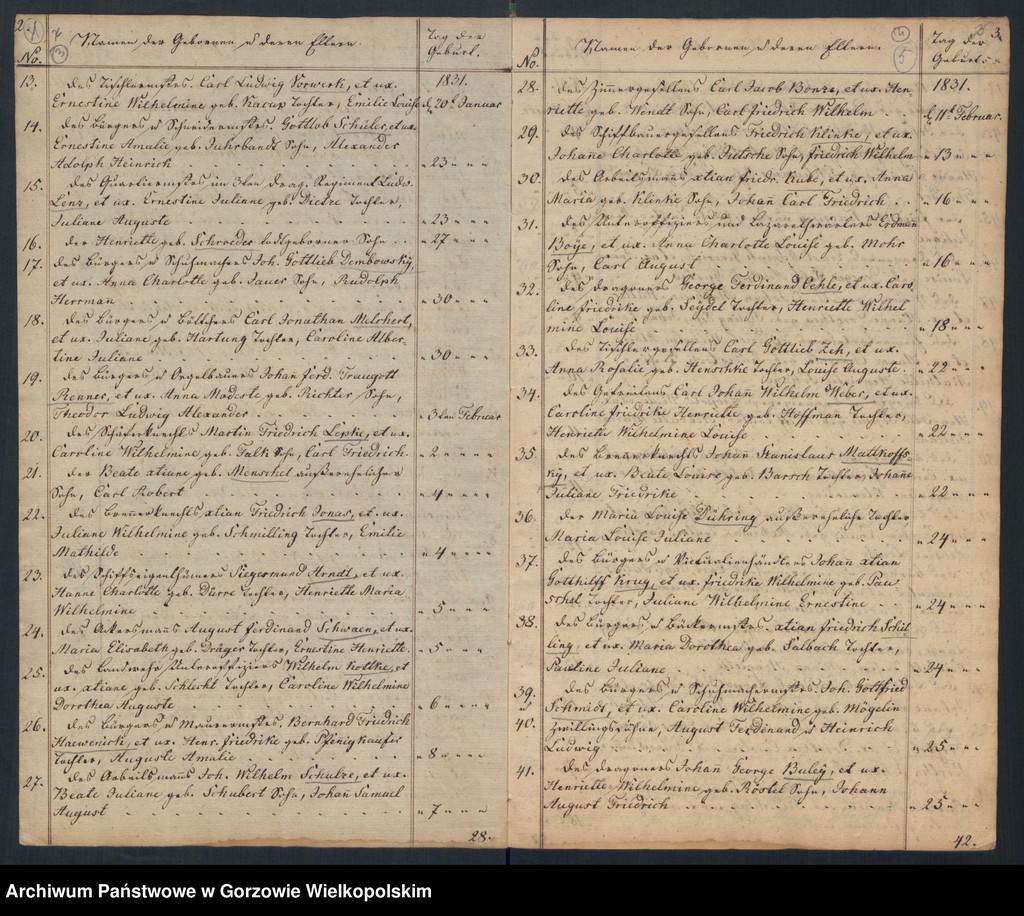 2.
No.
Namen der Gebornen u deren Eltern.
Tag der
Geburt.
13.
des Tischlermstrs. Carl Ludwig Vorwerk, et ux.
1831.
Ernestine Wilhelmine geb. Tochter, Emilie Louise
d. 20t Januar
14.
des Bürgers u Schneidermstrs. Gottlob Schüler, et ux.
Ernestine Amalie geb. Fuhrbandt Sohn, Alexander
Adolph Heinrich
" 23 " " "
15.
des im 3ten Drag. Regiment Ludw.
Lenz, et ux. Ernestine Juliane geb. Dietze Tochter,
Juliane Auguste
" 23 " " "
16.
der Henriette geb. Schroeder todtgeborner Sohn
" 27 " " "
17.
des Bürgers u Schuhmachers Joh. Gottlieb Dembowsky,
et ux. Anna Charlotte geb. Jauer Sohn, Rudolph
Herrman
" 30 " " "
18.
des Bürgers u Böttchers Carl Jonathan Melchert,
et ux. Juliane geb. Hartung Tochter, Caroline Alber-
tine Juliane
" 30 " " "
19.
des Bürgers u Orgelbauers Johañ Ferd. Traugott
Renner, et ux. Anna Modeste geb. Richter Sohn,
Theodor Ludwig Alexander
" 3ten Februar
20.
des Schäferknechts Martin Friedrich Lipske, et ux.
Caroline Wilhelmine geb. Falk Sohn, Carl Friedrich
" 2 " " "
21.
der Beate xtiane geb. Menschel außerehelicher
Sohn, Carl Robert
" 4 " " "
22.
des Brennerknechts xtian Friedrich Jonas, et ux.
Juliane Wilhelmine geb. Schmilling Tochter, Emilie
Mathilde
" 4 " " "
23.
des Schiffseigenthümers Siegesmund Arndt, et ux.
Hanne Charlotte geb. Dürre Tochter, Henriette Maria
Wilhelmine
" 5 " " "
24.
des Ackersmañs August Ferdinand Schwaen, et ux.
Maria Elisabeth geb. Dräger Tochter, Ernestine Henriette
" 5 " " "
25.
des Landwehr Unteroffiziers Wilhelm Kottke, et
ux. xtiane geb. Schlecht Tochter, Caroline Wilhelmine
Dorothea Auguste
" 6 " " "
26.
des Bürgers u Maurermstrs Bernhard Friedrich
Hawenick, et ux. Henr. Friedrike geb. Pfenigkaufer
Tochter, Auguste Amalie
" 8 " " "
27.
des Arbeitsmañs Joh. Wilhelm Schulze, et ux.
Beate Juliane geb. Schubert Sohn, Johañ Samuel
August
" 7 " " "
28.
3.
5
No.
Namen der Gebornen u deren Eltern.
Tag der
Geburts
28.
des Zimmergesellens Carl Jacob Bonze, et ux. Hen
1831.
riette geb. Wendt Sohn, Carl Friedrich Wilhelm
d. 11t Februar.
29.
des Schiffbauergesellens Friedrich Klinke, et ux.
Johane Charlotte geb. Jutsche Sohn, Friedrich Wilhelm
" 13 " " "
30.
des Arbeitsmañs xtian Friedr. Kube, et ux. Anna
Maria geb. Klinke Sohn, Johañ Carl Friedrich
" 16 " " "
31.
des Unteroffiziers und Erdmañ
Boye, et ux. Anna Charlotte Louise geb. Mohr
Sohn, Carl August
" 16 " " "
32.
des Dragoners George Ferdinand Oehle, et ux. Caro
line Friedrike geb. Seydel Tochter, Henriette Wilhel
mine Louise
" 18 " " "
33.
des Tischlergesellens Carl Gottlieb Zeh, et ux.
Anna Rosalie geb. Henschke Tochter, Louise Auguste
" 22 " " "
34.
des Gefreiten Carl Johañ Wilhelm Weber, et ux.
Caroline Friedrike Henriette geb. Hoffman Tochter,
Henriette Wilhelmine Louise
" 22 " " "
35.
des Johañ Stanislaus Mattkoffs
ky, et ux. Beate Louise geb. Barsch Tochter, Johane
Juliane Friedrike
" 22 " " "
36.
der Maria Louise Dühring außereheliche Tochter
Maria Louise Juliane
" 24 " " "
37.
des Bürgers u Victualienhändlers Johañ xtian
Gotthilff Krug, et ux. Friedrike Wilhelmine geb. Pau
schel Tochter, Juliane Wilhelmine Ernestine
" 24 " " "
38.
des Bürgers u Bäckermstrs. xtian Friedrich Schil
ling, et ux. Maria Dorothea geb. Salbach Tochter,
Pauline Juliane
" 24 " " "
39.
u
des Bürgers u Schuhmachermstrs Joh. Gottfried
Schmidt, et ux. Caroline Wilhelmine geb. Mögelin
40.
Zwillingssöhne, August Ferdinand u Heinrich
Ludwig
" 25 " " "
41.
des Dragoners Johañ George Buley, et ux.
Henriette Wilhelmine geb. Röstel Sohn, Johann
August Friedrich
" 25 " " "
42.
Archiwum Państwowe w Gorzowie Wielkopolskim